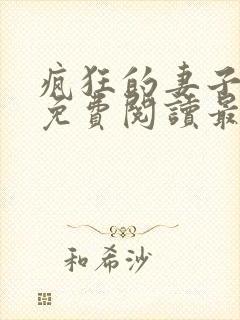 瘋狂的妻子
免費閱讀最
和希沙